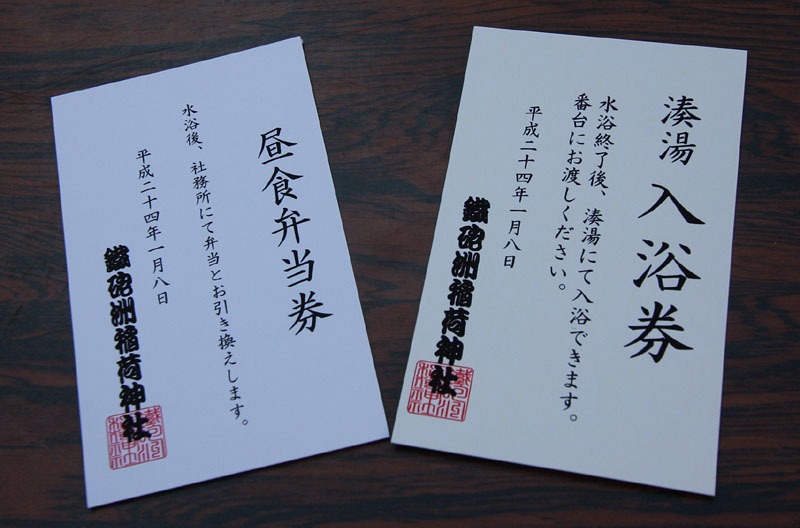 昼食弁当券
水浴後、社務所にて弁当とお引き換えします。
平成二十四年一月八日
鐵砲洲稲荷神社
湊湯 入浴券
水浴終了後、湊湯にて入浴できます。
番台にお渡しください。
平成二十四年一月八日
鐵砲洲稲荷神社